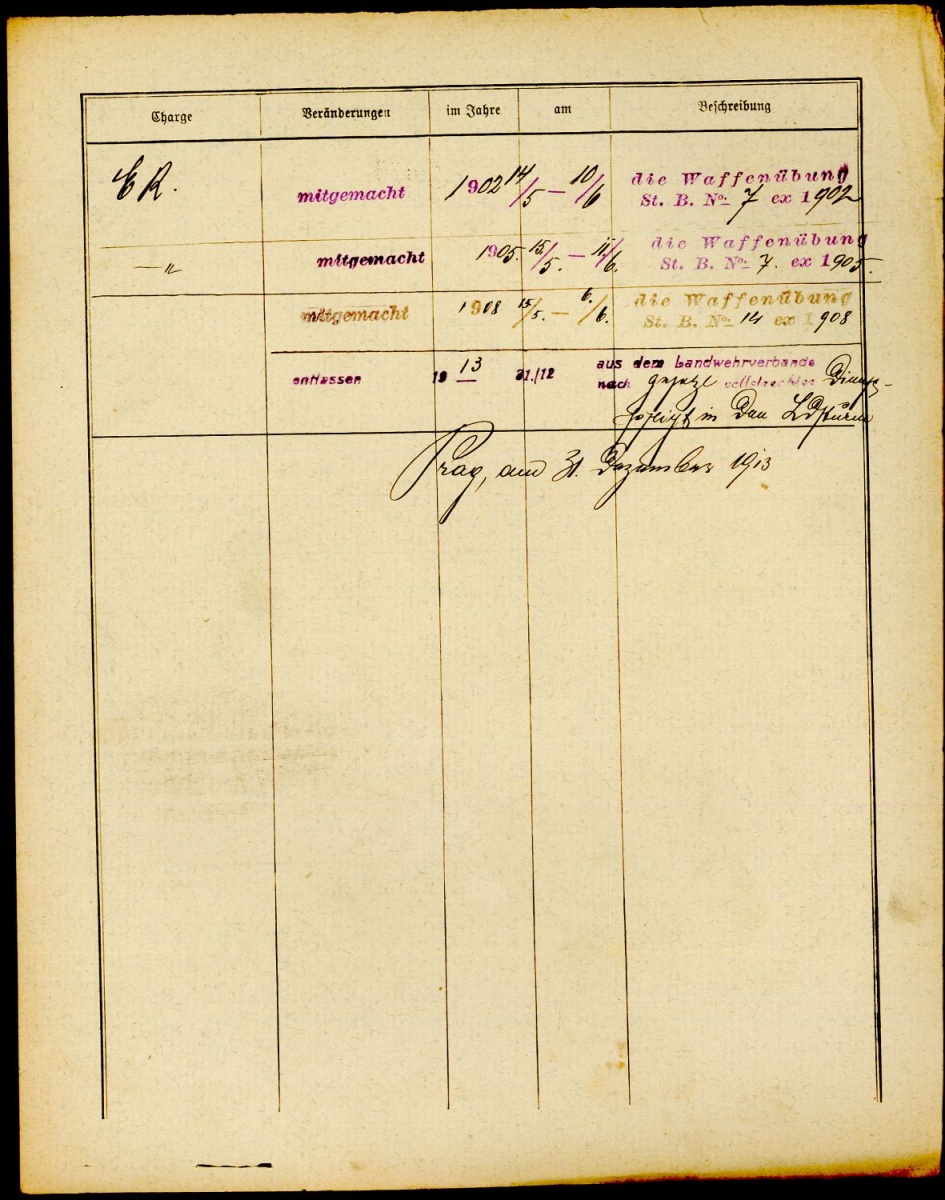 Charge Veränderungen im Jahre am Beschreibung
ER. mitgemacht 1902 14/5 – 10/6 die Waffenübung
St. B. No. 7 ex 1902
— " mitgemacht 1905. 15/5. – 11/6. die Waffenübung
St. B. No. 7. ex 1905.
mitgemacht 1908 15/5. – 6./6. die Waffenübung
St. B. No. 14 ex 1908
entlassen 1913 31./12 aus dem Landwehrverbande
nach vollstreckter Dienst-
pflicht in den Ldsturm
Prag, am 31. Dezember 1913